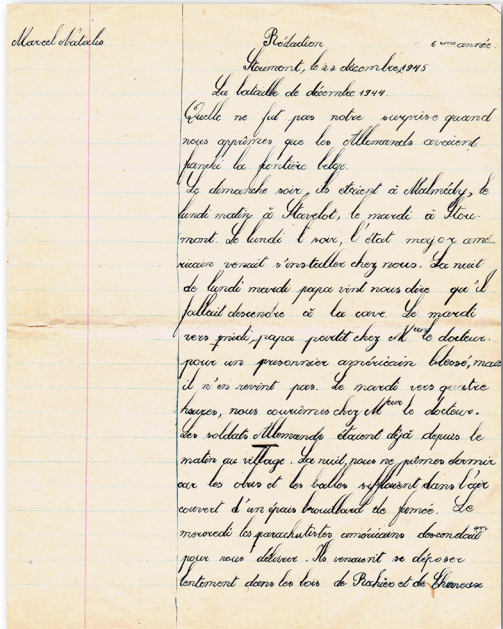 Marcel Natalis
Rédaction
6ème année.
Stoumont, le 22 décembre, 1945
La bataille de décembre 1944.
Quelle ne fut pas notre surprise quand
nous apprîmes que les Allemands avaient
franchi la frontière belge.
Le dimanche soir, ils étaient à Malmédy, le
lundi matin à Stavelot, le mardi à Stou-
mont. Le lundi soir, l'état major amé-
ricain venait s'installer chez nous. La nuit
de lundi mardi papa vint nous dire qu'il
fallait descendre à la cave. Le mardi
vers midi, papa partit chez Mr le docteur.
pour un prisonnier américain blessé, mais
il n'en revint pas. Le mardi vers quatre
heures, nous courûmes chez Meur le docteur.
Les soldats Allemands étaient déjà depuis le
matin au village. La nuit, nous ne pûmes dormir
car les obus et les balles sifflaient dans l'air
couvert d'un épais brouillard de fumée. Le
mercredi les parachutistes américains descendaient
pour nous délivrer. Ils venaient se déposer
lentement dans les bois de Rahier et de Cheneux